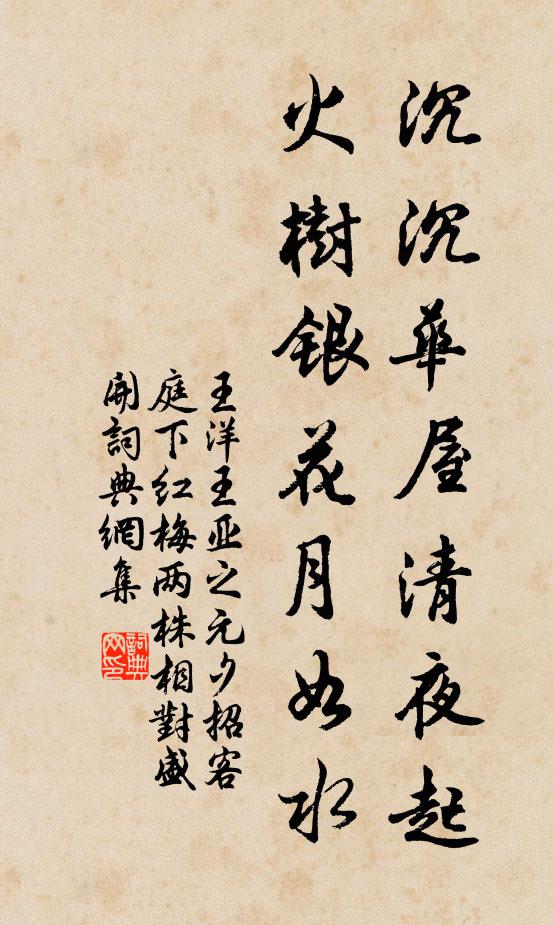 沉沉華屋清夜起
火樹銀花月如水
王洋王亚之元夕招客
庭下红梅两株相對盛
開詞典網集
詞典網印